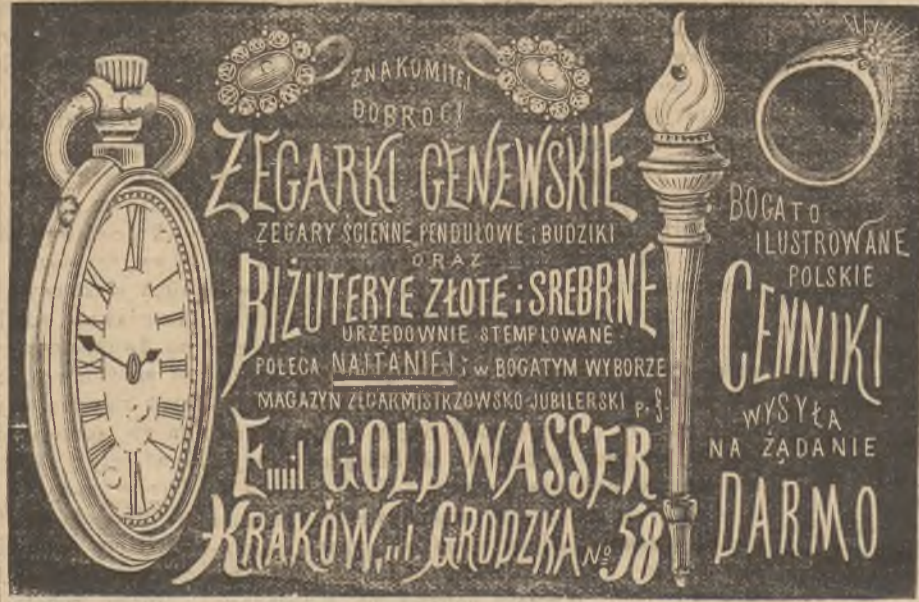 ZNAKOMITEJ
DOBROCI
ZEGARKI GENEWSKIE
ZEGARY ŚCIENNE PENDUŁOWE i BUDZIKI
ORAZ
BIŻUTERYE ZŁOTE i SREBRNE
URZĘDOWNIE STEMPLOWANE
POLECA NAJTANIEJ i W BOGATYM WYBORZE
MAGAZYN ZEGARMISTRZOWSKO-JUBILERSKI p. f.
Emil GOLDWASSER
KRAKÓW, ul. GRODZKA № 58
BOGATO
ILUSTROWANE
POLSKIE
CENNIKI
WYSYŁA
NA ŻĄDANIE
DARMO